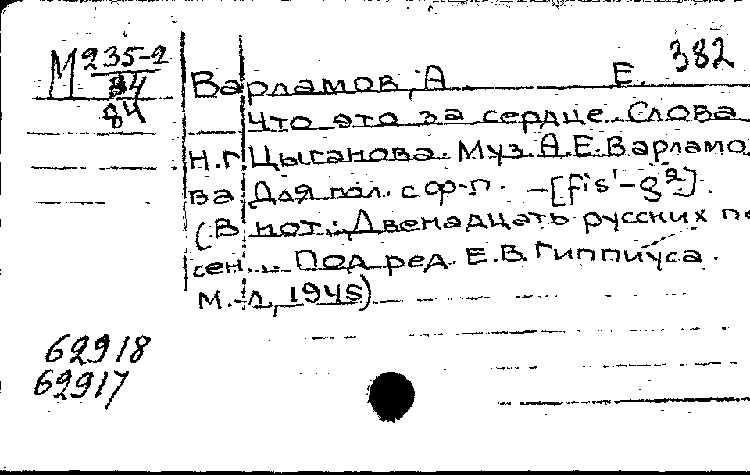 382
М 235-2
84
84
Варламов, А. Е.
Что это за сердце. Слова
Н.Г. Цыганова. Муз. А.Е. Варламо
ва Для гол. с ф-п. - [fis'-g²].
(В нот.: Двенадцать русских пе
сен... Под ред. Е.В. Гиппиуса.
М.-Л., 1945)
62918
62917